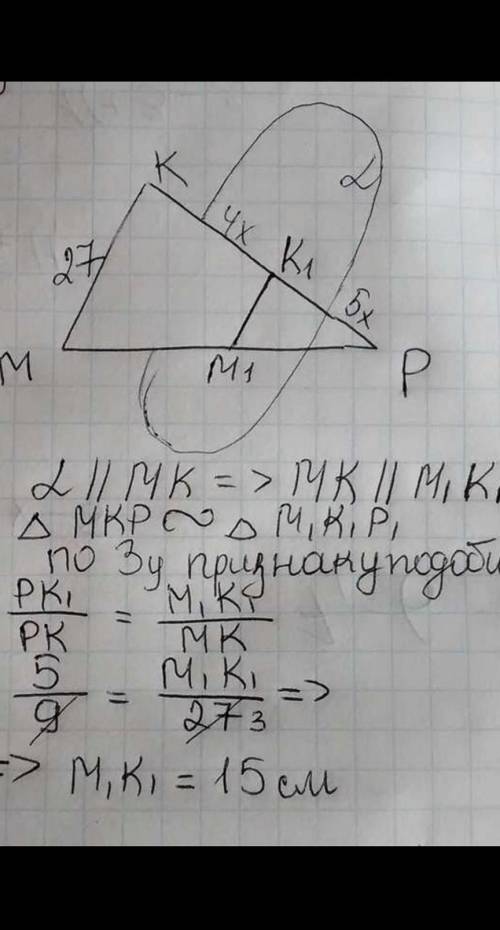 K
α
4x
27
K₁
5x
M
M₁
P
α // MK => MK // M₁K₁
△ MKP ∾ △ M₁K₁P₁
по 3у признаку подоби
PK₁/PK = M₁K₁/MK
5/9 = M₁K₁/27 3 =>
=> M₁K₁ = 15 см